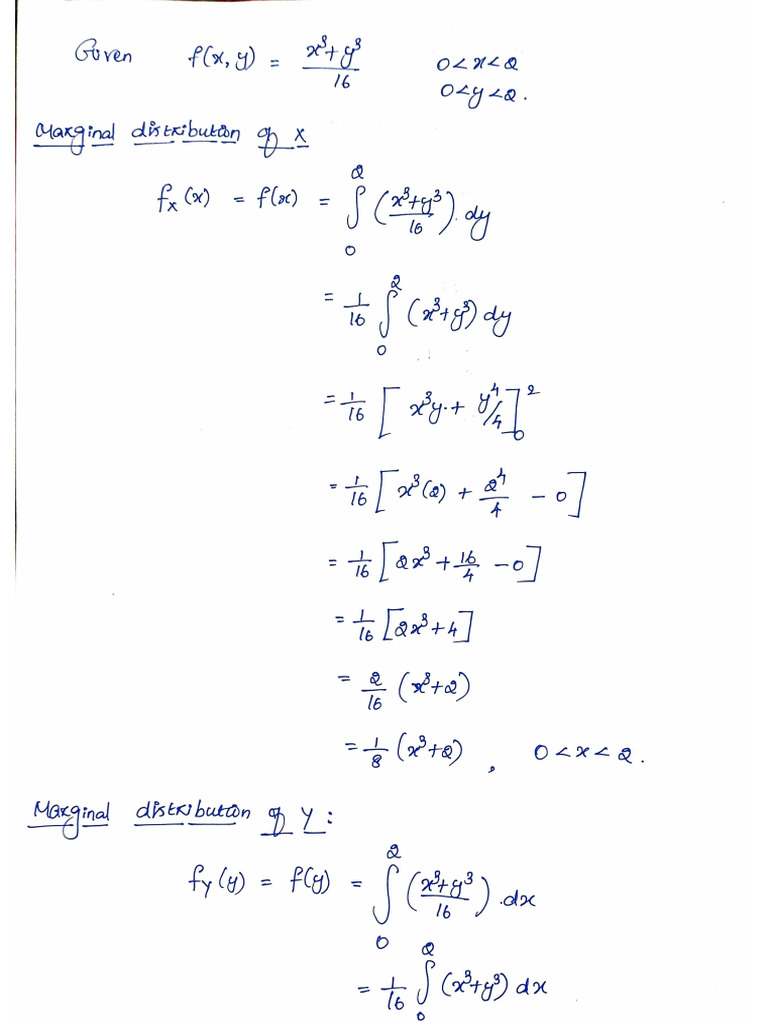 Given f(x,y) = x³+y³/16 0<x<2
0<y<2.
Marginal distribution of X
fₓ(x) = f(x) = ∫₀² (x³+y³/16).dy
= 1/16 ∫₀² (x³+y³) dy
= 1/16 [x³y + y⁴/4]₀²
= 1/16 [x³(2) + 2⁴/4 - 0]
= 1/16 [2x³ + 16/4 - 0]
= 1/16 [2x³+4]
= 2/16 (x³+2)
= 1/8 (x³+2), 0<x<2.
Marginal distribution of Y:
f_Y(y) = f(y) = ∫₀² (x³+y³/16).dx
= 1/16 ∫₀² (x³+y³) dx